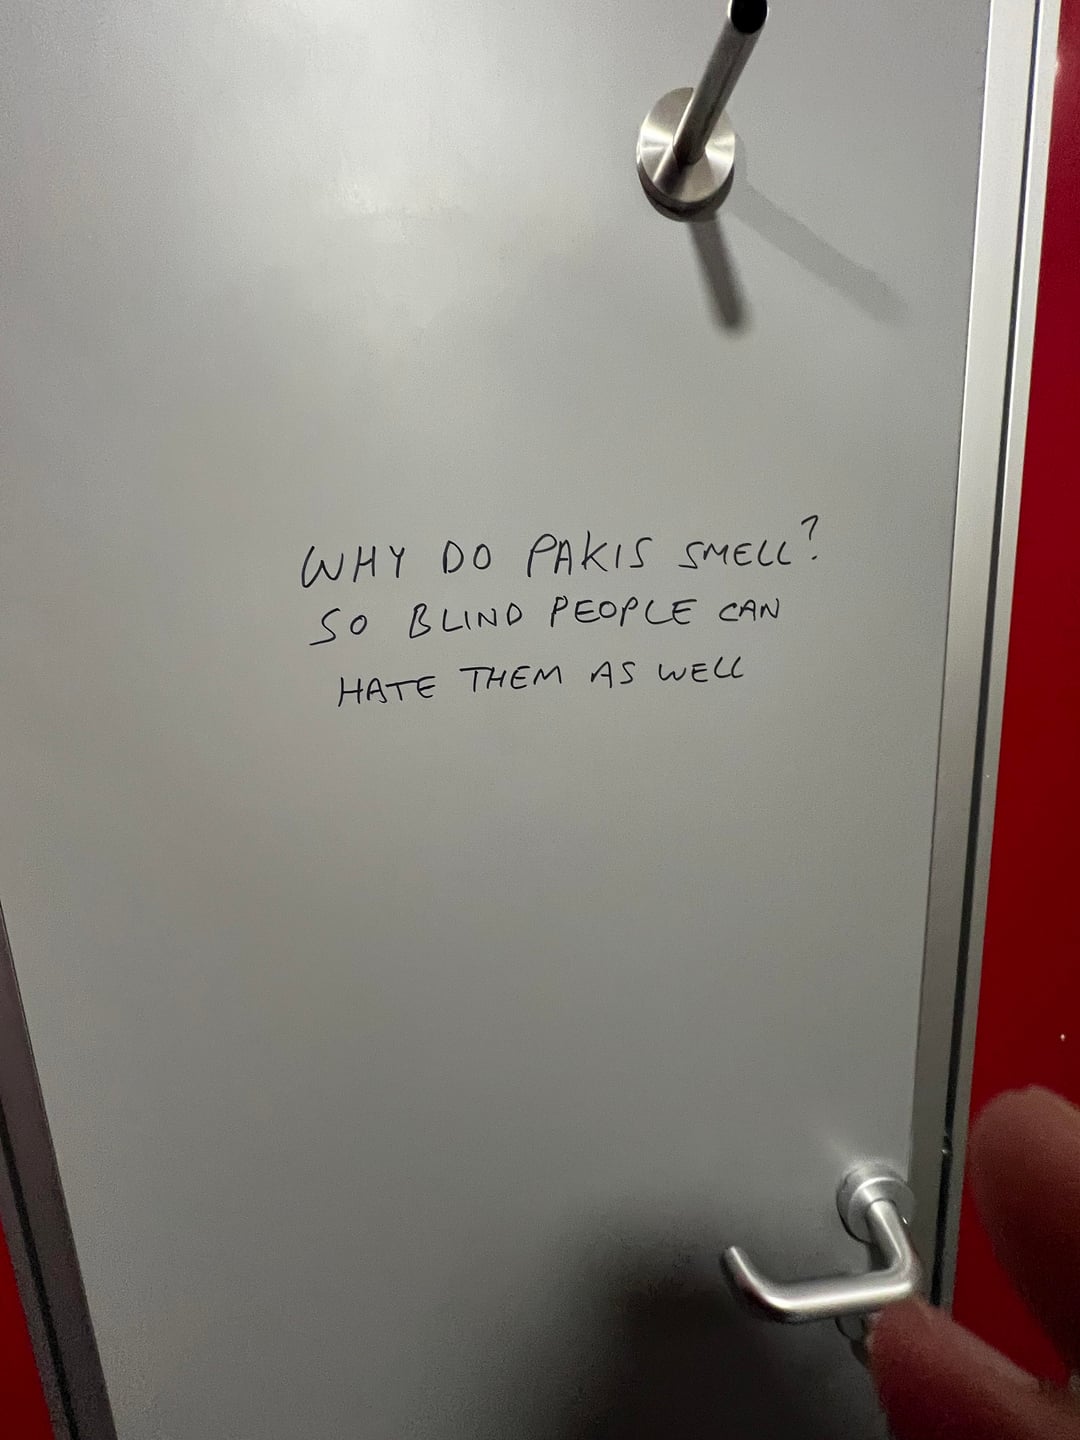 WHY DO PAKIS SMELL?
SO BLIND PEOPLE CAN
HATE THEM AS WELL